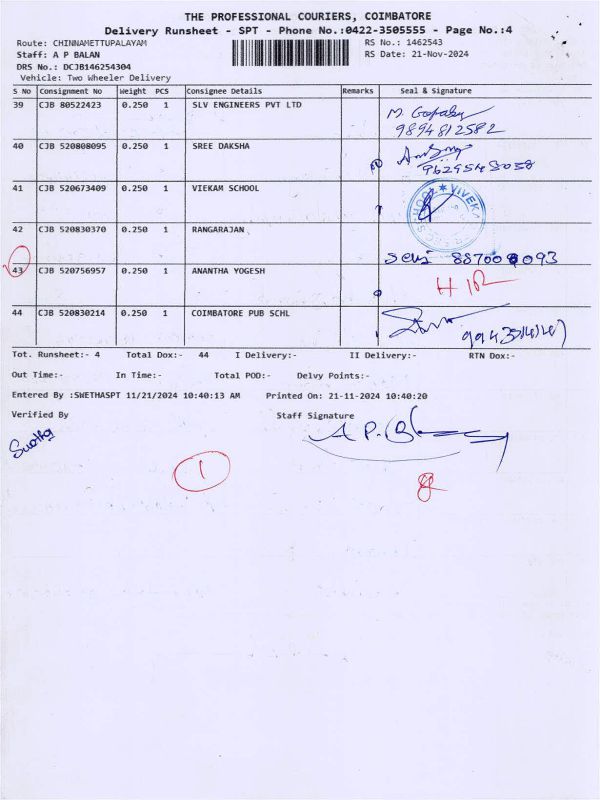 THE PROFESSIONAL COURIERS, COIMBATORE
Delivery Runsheet - SPT - Phone No.:0422-3505555 - Page No.:4
Route: CHINNAMETTUPALAYAM RS No.: 1462543
Staff: A P BALAN RS Date: 21-Nov-2024
DRS No.: DCJB146254304
Vehicle: Two Wheeler Delivery
S No Consignment No Weight PCS Consignee Details Remarks Seal & Signature
39 CJB 80522423 0.250 1 SLV ENGINEERS PVT LTD
9894812582
40 CJB 520808095 0.250 1 SREE DAKSHA
41 CJB 520673409 0.250 1 VIEKAM SCHOOL
42 CJB 520830370 0.250 1 RANGARAJAN
43 CJB 520756957 0.250 1 ANANTHA YOGESH
44 CJB 520830214 0.250 1 COIMBATORE PUB SCHL
Tot. Runsheet:- 4 Total Dox:- 44 I Delivery:- II Delivery:- RTN Dox:-
Out Time:- In Time:- Total POD:- Delvy Points:-
Entered By :SWETHASPT 11/21/2024 10:40:13 AM Printed On: 21-11-2024 10:40:20
Verified By Staff Signature
1